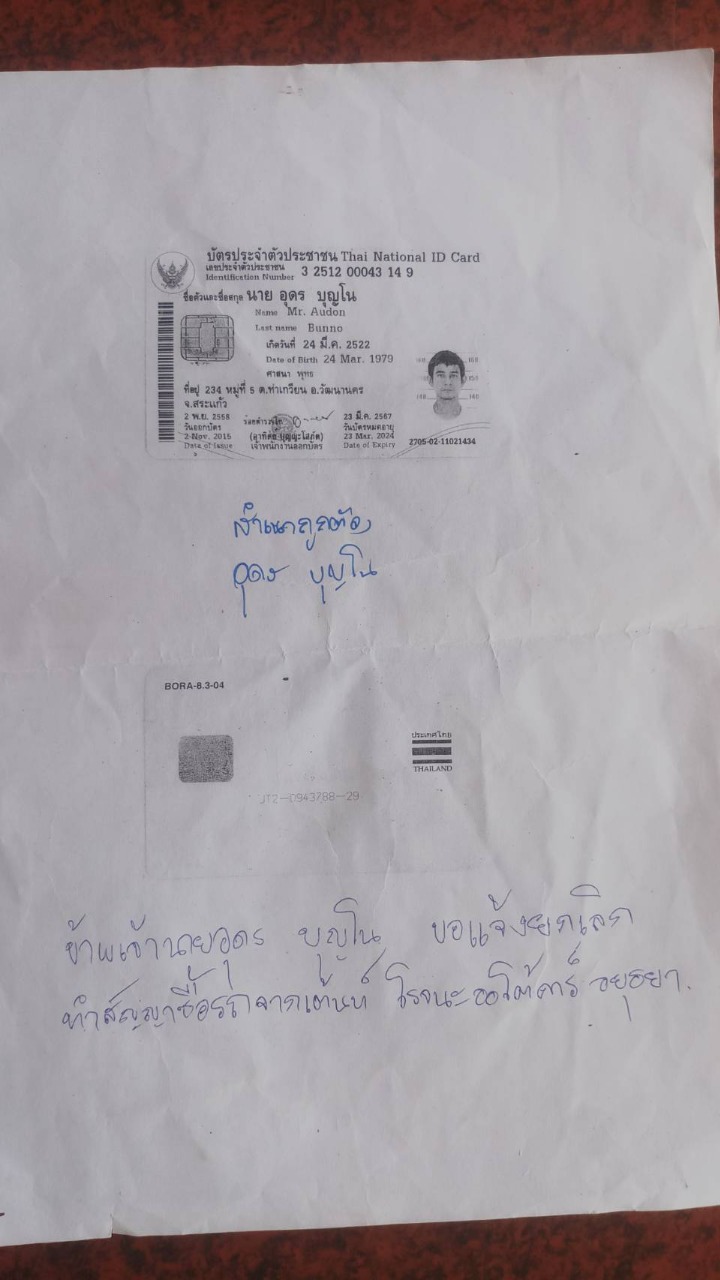 บัตรประจำตัวประชาชน Thai National ID Card
เลขประจำตัวประชาชน
Identification Number 3 2512 00043 14 9
ชื่อตัวและชื่อสกุล นาย อุดร บุญโน
Name Mr. Audon
Last name Bunno
เกิดวันที่ 24 มี.ค. 2522
Date of Birth 24 Mar. 1979
ศาสนา พุทธ
ที่อยู่ 234 หมู่ที่ 5 ต.ท่าเกวียน อ.วัฒนานคร
จ.สระแก้ว
2 พ.ย. 2558
วันออกบัตร
2 Nov. 2015
Date of Issue
เจ้าพนักงานออกบัตร
23 มี.ค. 2567
วันบัตรหมดอายุ
23 Mar. 2024
Date of Expiry
2705-02-11021434
สำเนาถูกต้อง
อุดร บุญโน
BORA-8.3-04
ประเทศไทย
THAILAND
JT2-0943788-29
ข้าพเจ้านายอุดร บุญโน ขอแจ้งยกเลิก
ทำสัญญาซื้อรถจากเต้นท์ โรจนะออโต้คาร์ อยุธยา.